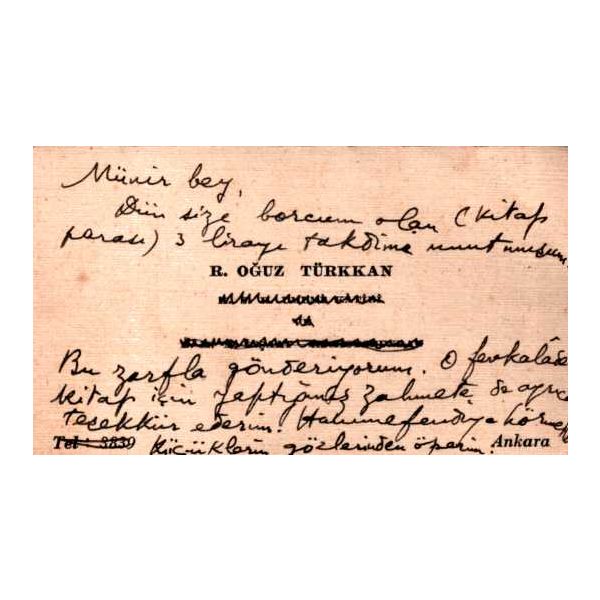 Münir bey,
Dün size borcum olan (kitap
parası) 3 lirayı takdime unutmuşum.
R. OĞUZ TÜRKKAN
Bu zarfla gönderiyorum. O fevkalâde
kitap için yaptığınız zahmete de ayrıca
teşekkür ederim. Hanımefendiye hürmet
Tel : 3839 Ankara
Küçüklerin gözlerinden öperim.